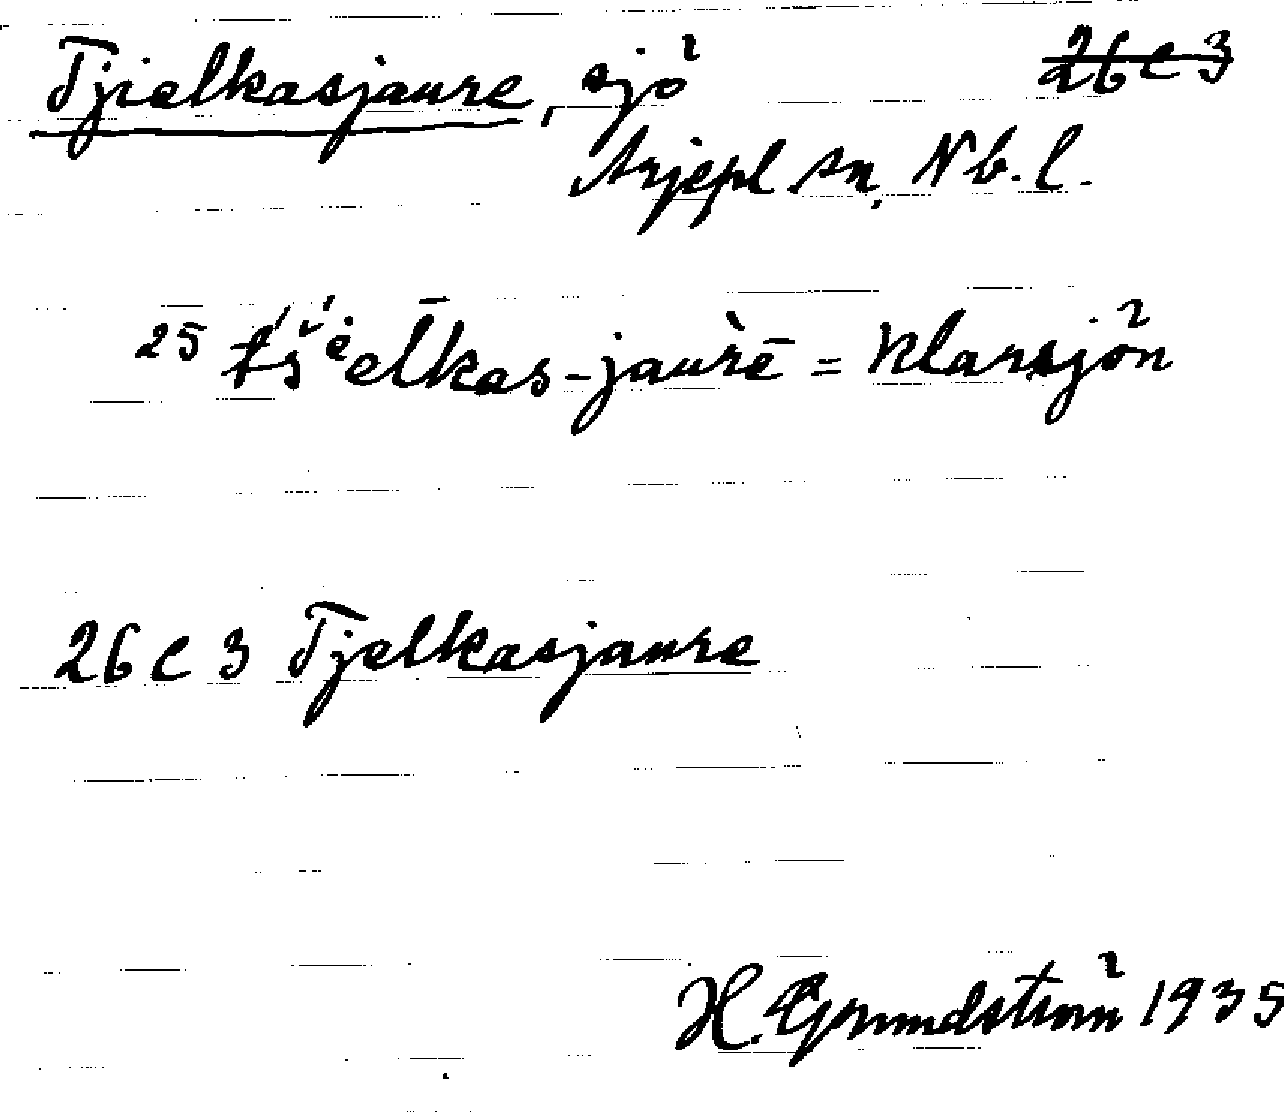 Tjielkasjaure, sjö 26 C 3
Arjepl. sn, Nb. l.
25 tš'ėēlkas-jaurē = Klarsjön
26 C 3 Tjelkasjaure
H. Grundström 1935